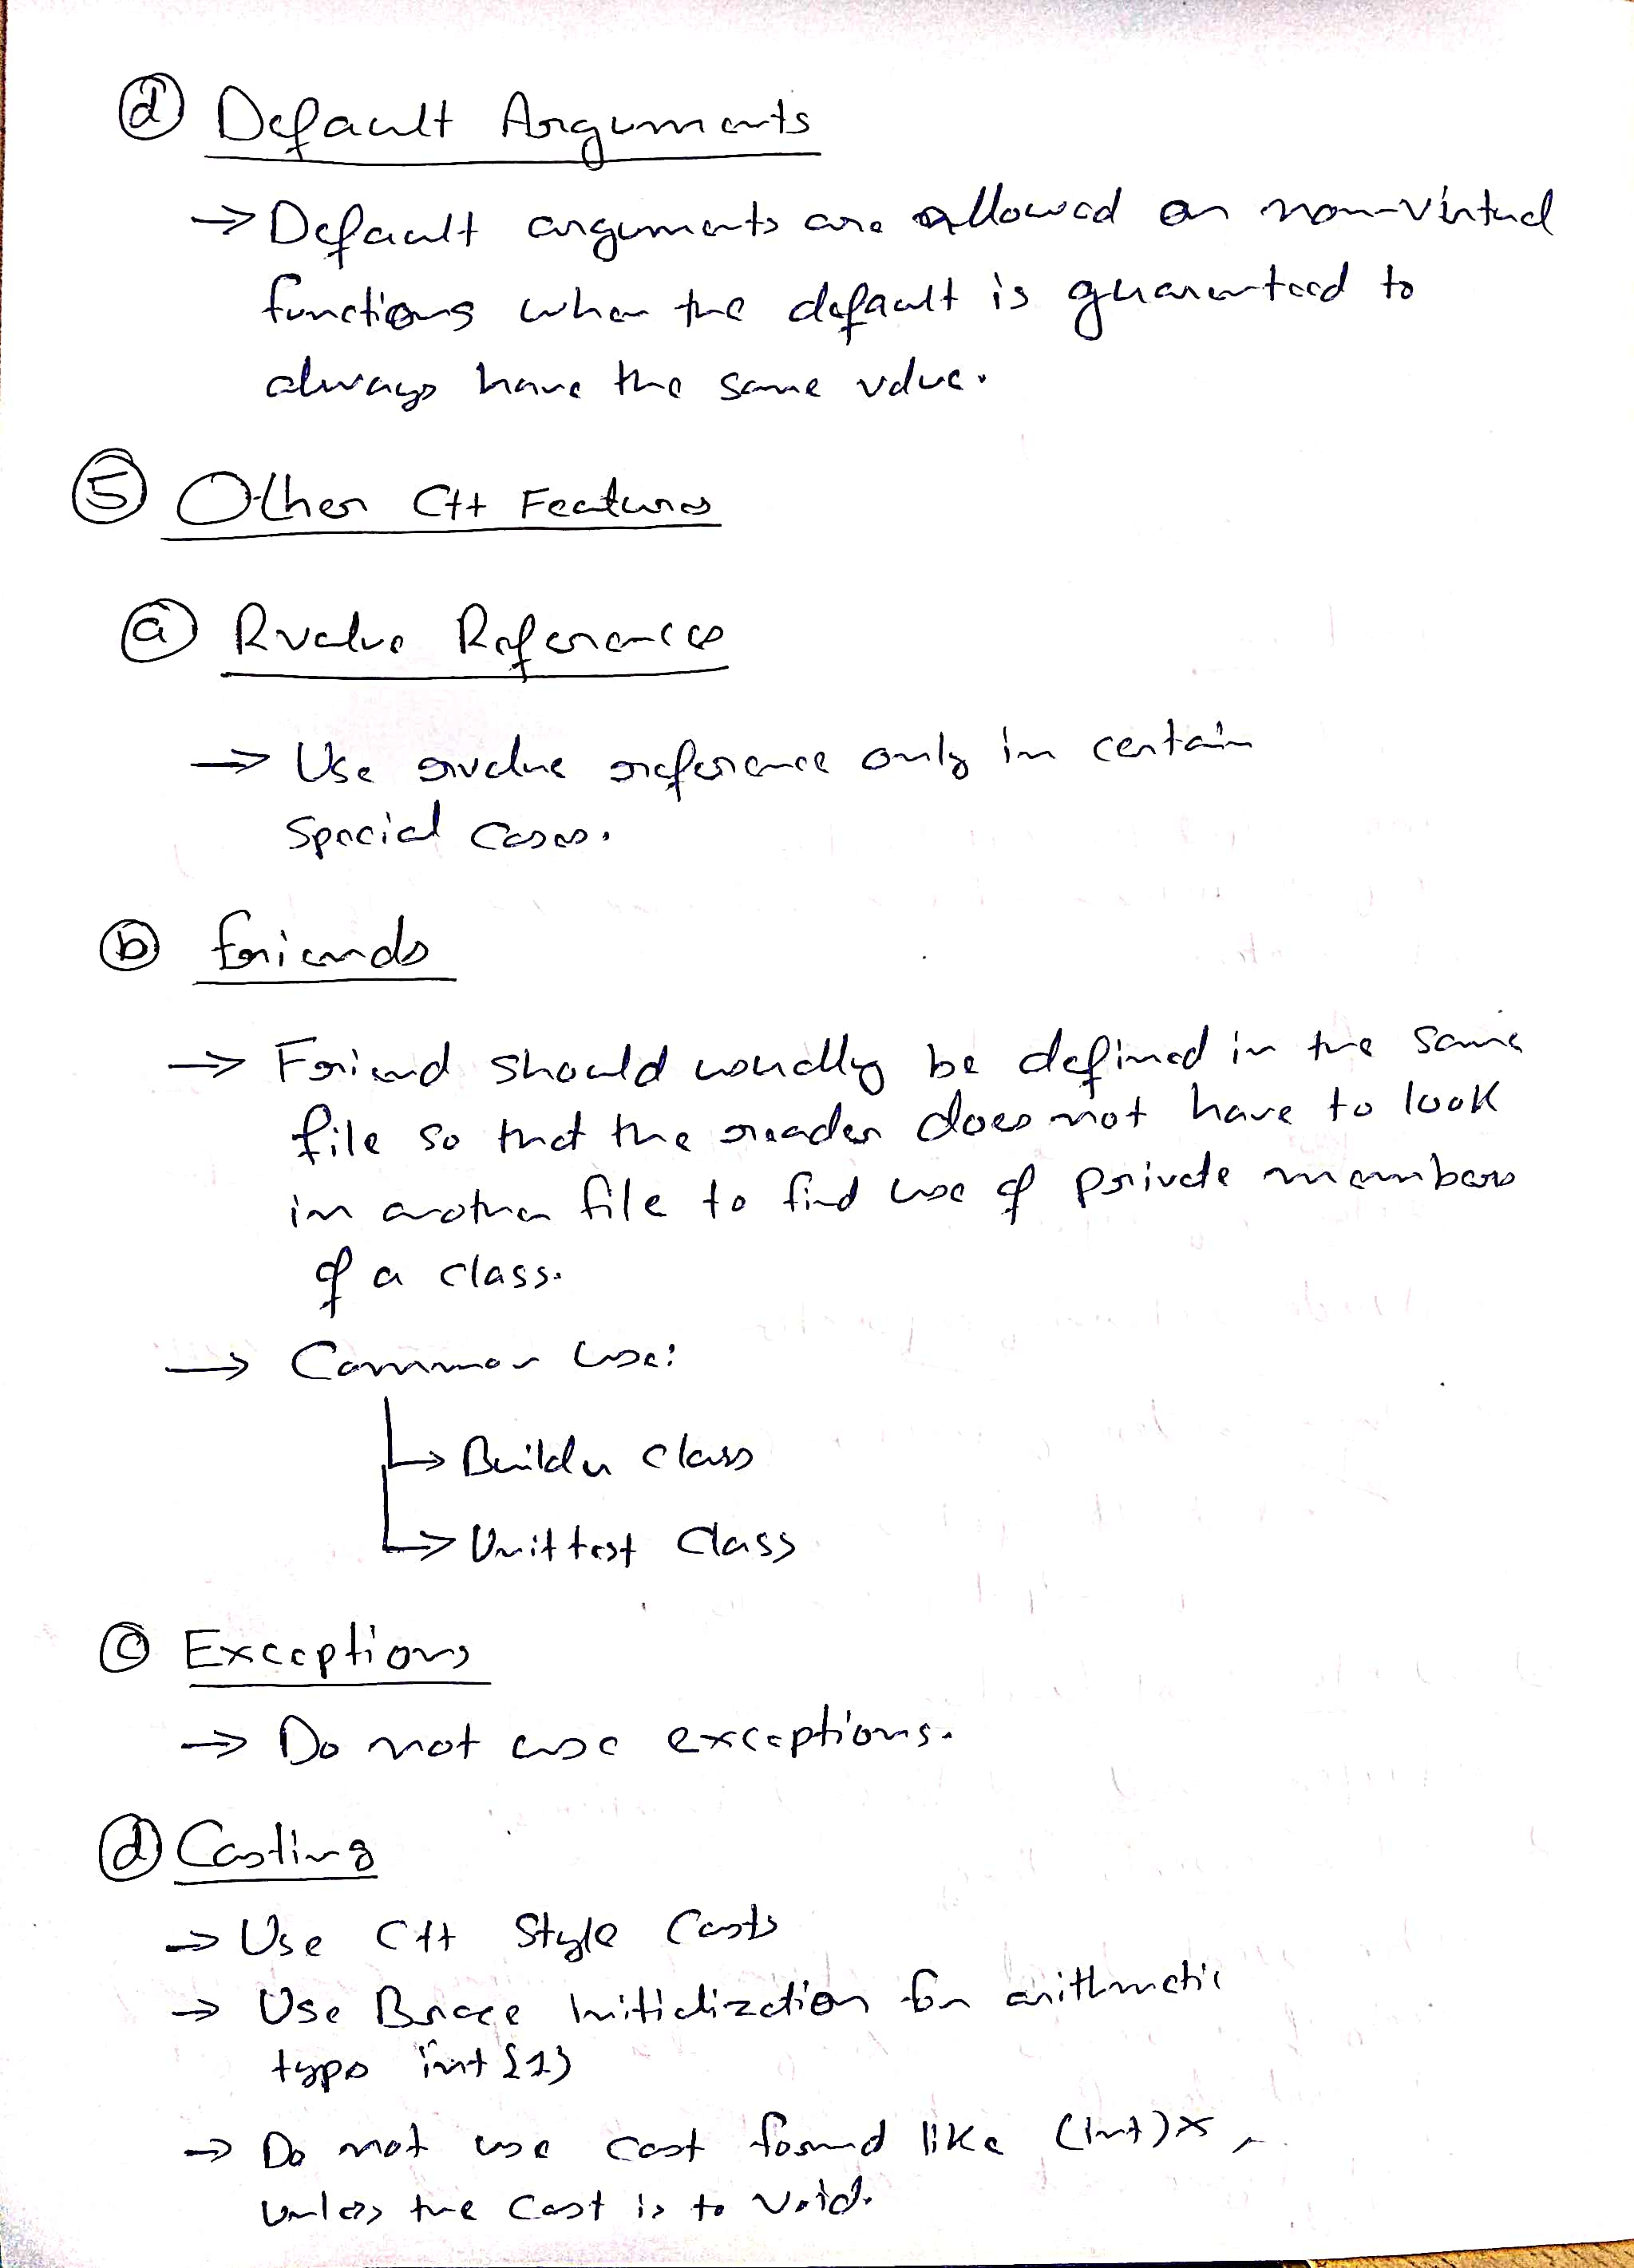 ⓓ Default Arguments
→ Default arguments are allowed on non-virtual
functions when the default is guaranteed to
always have the same value.
⑤ Other C++ Features
ⓐ Rvalue References
→ Use rvalue reference only in certain
special cases.
ⓑ friends
→ Friend should usually be defined in the same
file so that the reader does not have to look
in another file to find use of private members
of a class.
→ Common use:
→ Builder class
→ Unittest class
ⓒ Exceptions
→ Do not use exceptions.
ⓓ Casting
→ Use C++ Style Casts
→ Use Brace Initialization for arithmetic
types int{1}
→ Do not use cast format like (int)x,
unless the cast is to void.